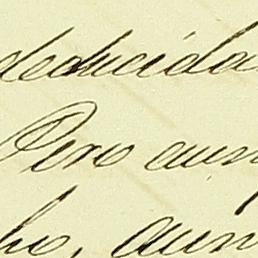 deducida
Pero aun
ho, aun